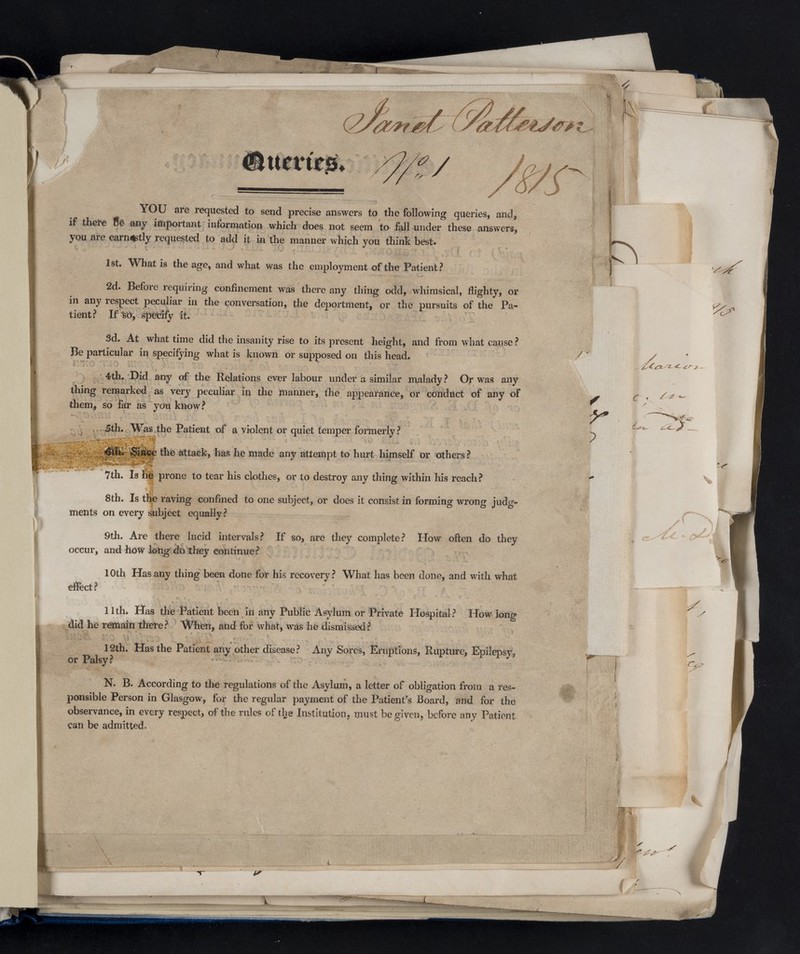 Janet Patterson
Queries. No. 1 1815
YOU are requested to send precise answers to the following queries, and,
if there be any important information which does not seem to fall under these answers,
you are earnestly requested to add it in the manner which you think best.
1st. What is the age, and what was the employment of the Patient?
2d. Before requiring confinement was there any thing odd, whimsical, flighty, or
in any respect peculiar in the conversation, the deportment, or the pursuits of the Pa-
tient? If so, specify it.
3d. At what time did the insanity rise to its present height, and from what cause?
Be particular in specifying what is known or supposed on this head.
4th. Did any of the Relations ever labour under a similar malady? Or was any
thing remarked as very peculiar in the manner, the appearance, or conduct of any of
them, so far as you know?
5th. Was the Patient of a violent or quiet temper formerly?
6th. Since the attack, has he made any attempt to hurt himself or others?
7th. Is he prone to tear his clothes, or to destroy any thing within his reach?
8th. Is the raving confined to one subject, or does it consist in forming wrong judg-
ments on every subject equally?
9th. Are there lucid intervals? If so, are they complete? How often do they
occur, and how long do they continue?
10th Has any thing been done for his recovery? What has been done, and with what
effect?
11th. Has the Patient been in any Public Asylum or Private Hospital? How long
did he remain there? When, and for what, was he dismissed?
12th. Has the Patient any other disease? Any Sores, Eruptions, Rupture, Epilepsy,
or Palsy?
N. B. According to the regulations of the Asylum, a letter of obligation from a res-
ponsible Person in Glasgow, for the regular payment of the Patient's Board, and for the
observance, in every respect, of the rules of the Institution, must be given, before any Patient
can be admitted.